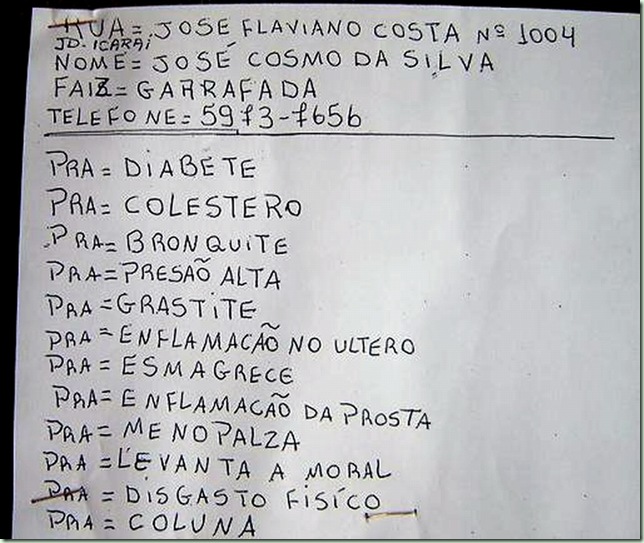 RUA = JOSE FLAVIANO COSTA Nº 1004
JD. ICARAI
NOME = JOSÉ COSMO DA SILVA
FAIZ = GARRAFADA
TELEFONE = 5973-7656
PRA = DIABETE
PRA = COLESTERO
PRA = BRONQUITE
PRA = PRESAÕ ALTA
PRA = GRASTITE
PRA = ENFLAMACÃO NO ULTERO
PRA = ESMAGRECE
PRA = ENFLAMACÃO DA PROSTA
PRA = MENOPALZA
PRA = LEVANTA A MORAL
PRA = DISGASTO FISÍCO
PRA = COLUNA